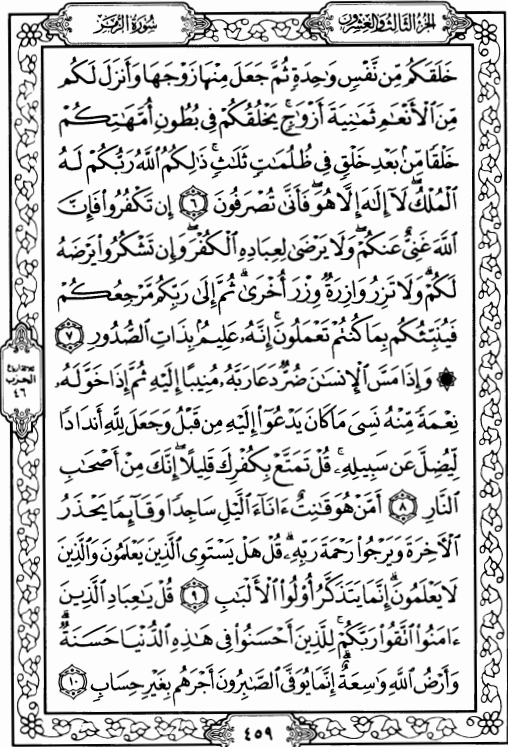 الجزء الثالث والعشرون
سورة الزمر
خَلَقَكُم مِّن نَّفْسٍ وَٰحِدَةٍ ثُمَّ جَعَلَ مِنْهَا زَوْجَهَا وَأَنزَلَ لَكُم
مِّنَ ٱلْأَنْعَٰمِ ثَمَٰنِيَةَ أَزْوَٰجٍ ۚ يَخْلُقُكُمْ فِى بُطُونِ أُمَّهَٰتِكُمْ
خَلْقًا مِّنۢ بَعْدِ خَلْقٍ فِى ظُلُمَٰتٍ ثَلَٰثٍ ۚ ذَٰلِكُمُ ٱللَّهُ رَبُّكُمْ لَهُ
ٱلْمُلْكُ ۖ لَآ إِلَٰهَ إِلَّا هُوَ ۖ فَأَنَّىٰ تُصْرَفُونَ ٦ إِن تَكْفُرُوا۟ فَإِنَّ
ٱللَّهَ غَنِىٌّ عَنكُمْ ۖ وَلَا يَرْضَىٰ لِعِبَادِهِ ٱلْكُفْرَ ۖ وَإِن تَشْكُرُوا۟ يَرْضَهُ
لَكُمْ ۗ وَلَا تَزِرُ وَازِرَةٌ وِزْرَ أُخْرَىٰ ۗ ثُمَّ إِلَىٰ رَبِّكُم مَّرْجِعُكُمْ
فَيُنَبِّئُكُم بِمَا كُنتُمْ تَعْمَلُونَ ۚ إِنَّهُۥ عَلِيمٌۢ بِذَاتِ ٱلصُّدُورِ ٧
۞ وَإِذَا مَسَّ ٱلْإِنسَٰنَ ضُرٌّ دَعَا رَبَّهُۥ مُنِيبًا إِلَيْهِ ثُمَّ إِذَا خَوَّلَهُۥ
نِعْمَةً مِّنْهُ نَسِىَ مَا كَانَ يَدْعُوٓا۟ إِلَيْهِ مِن قَبْلُ وَجَعَلَ لِلَّهِ أَندَادًا
لِّيُضِلَّ عَن سَبِيلِهِۦ ۚ قُلْ تَمَتَّعْ بِكُفْرِكَ قَلِيلًا ۖ إِنَّكَ مِنْ أَصْحَٰبِ
ٱلنَّارِ ٨ أَمَّنْ هُوَ قَٰنِتٌ ءَانَآءَ ٱلَّيْلِ سَاجِدًا وَقَآئِمًا يَحْذَرُ
ٱلْءَاخِرَةَ وَيَرْجُوا۟ رَحْمَةَ رَبِّهِۦ ۗ قُلْ هَلْ يَسْتَوِى ٱلَّذِينَ يَعْلَمُونَ وَٱلَّذِينَ
لَا يَعْلَمُونَ ۗ إِنَّمَا يَتَذَكَّرُ أُو۟لُوا۟ ٱلْأَلْبَٰبِ ٩ قُلْ يَٰعِبَادِ ٱلَّذِينَ
ءَامَنُوا۟ ٱتَّقُوا۟ رَبَّكُمْ ۚ لِلَّذِينَ أَحْسَنُوا۟ فِى هَٰذِهِ ٱلدُّنْيَا حَسَنَةٌ ۗ
وَأَرْضُ ٱللَّهِ وَٰسِعَةٌ ۗ إِنَّمَا يُوَفَّى ٱلصَّٰبِرُونَ أَجْرَهُم بِغَيْرِ حِسَابٍ ١٠
الحزب
٤٦
٤٥٩